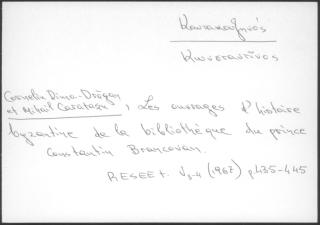 Καντακουζηνός
Κωνσταντῖνος
Corneliu Dima-Drăgan
et Mihail Caratașu, Les ouvrages d'histoire
byzantine de la bibliothèque du prince
Constantin Brancovan.
RESEE t. V3-4 (1967) p.435-445